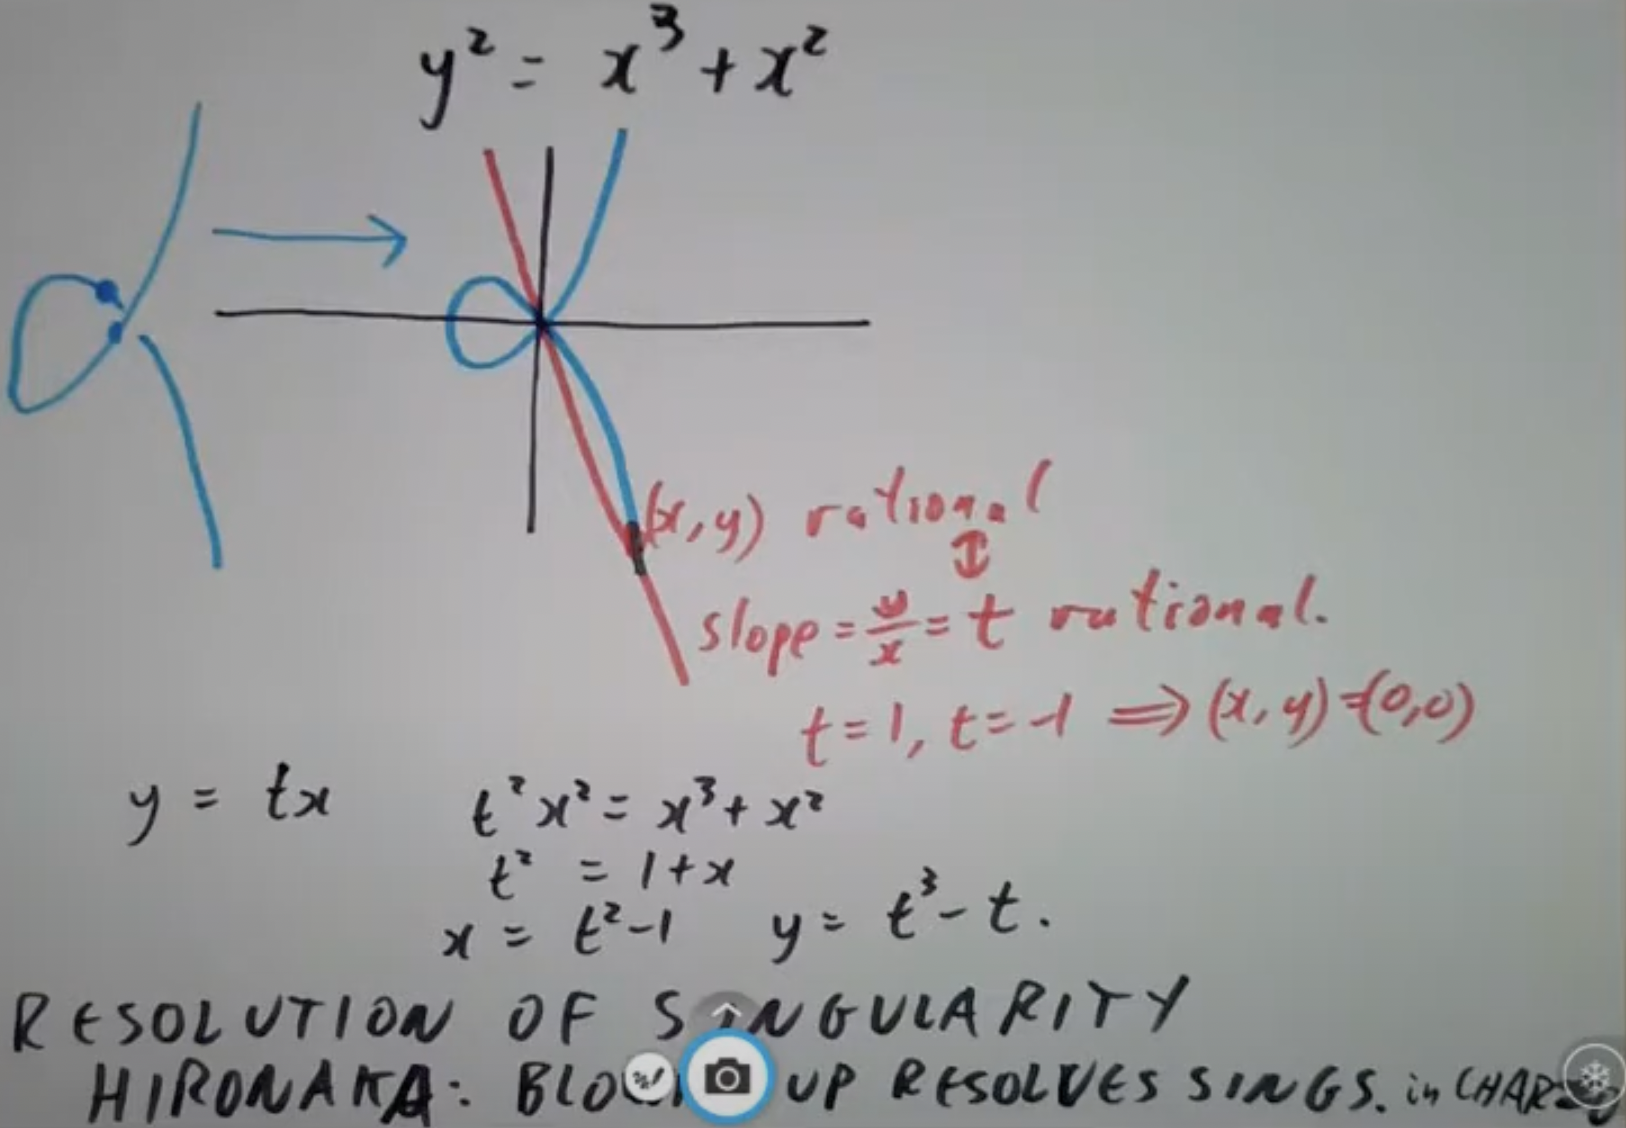 y² = x³ + x²
(x, y) rational
↕
slope = y/x = t rational.
t = 1, t = -1 ⟹ (x, y) = (0,0)
y = tx t²x² = x³ + x²
t² = 1 + x
x = t² - 1 y = t³ - t.
RESOLUTION OF SINGULARITY
HIRONAKA: UP RESOLVES SINGS. in